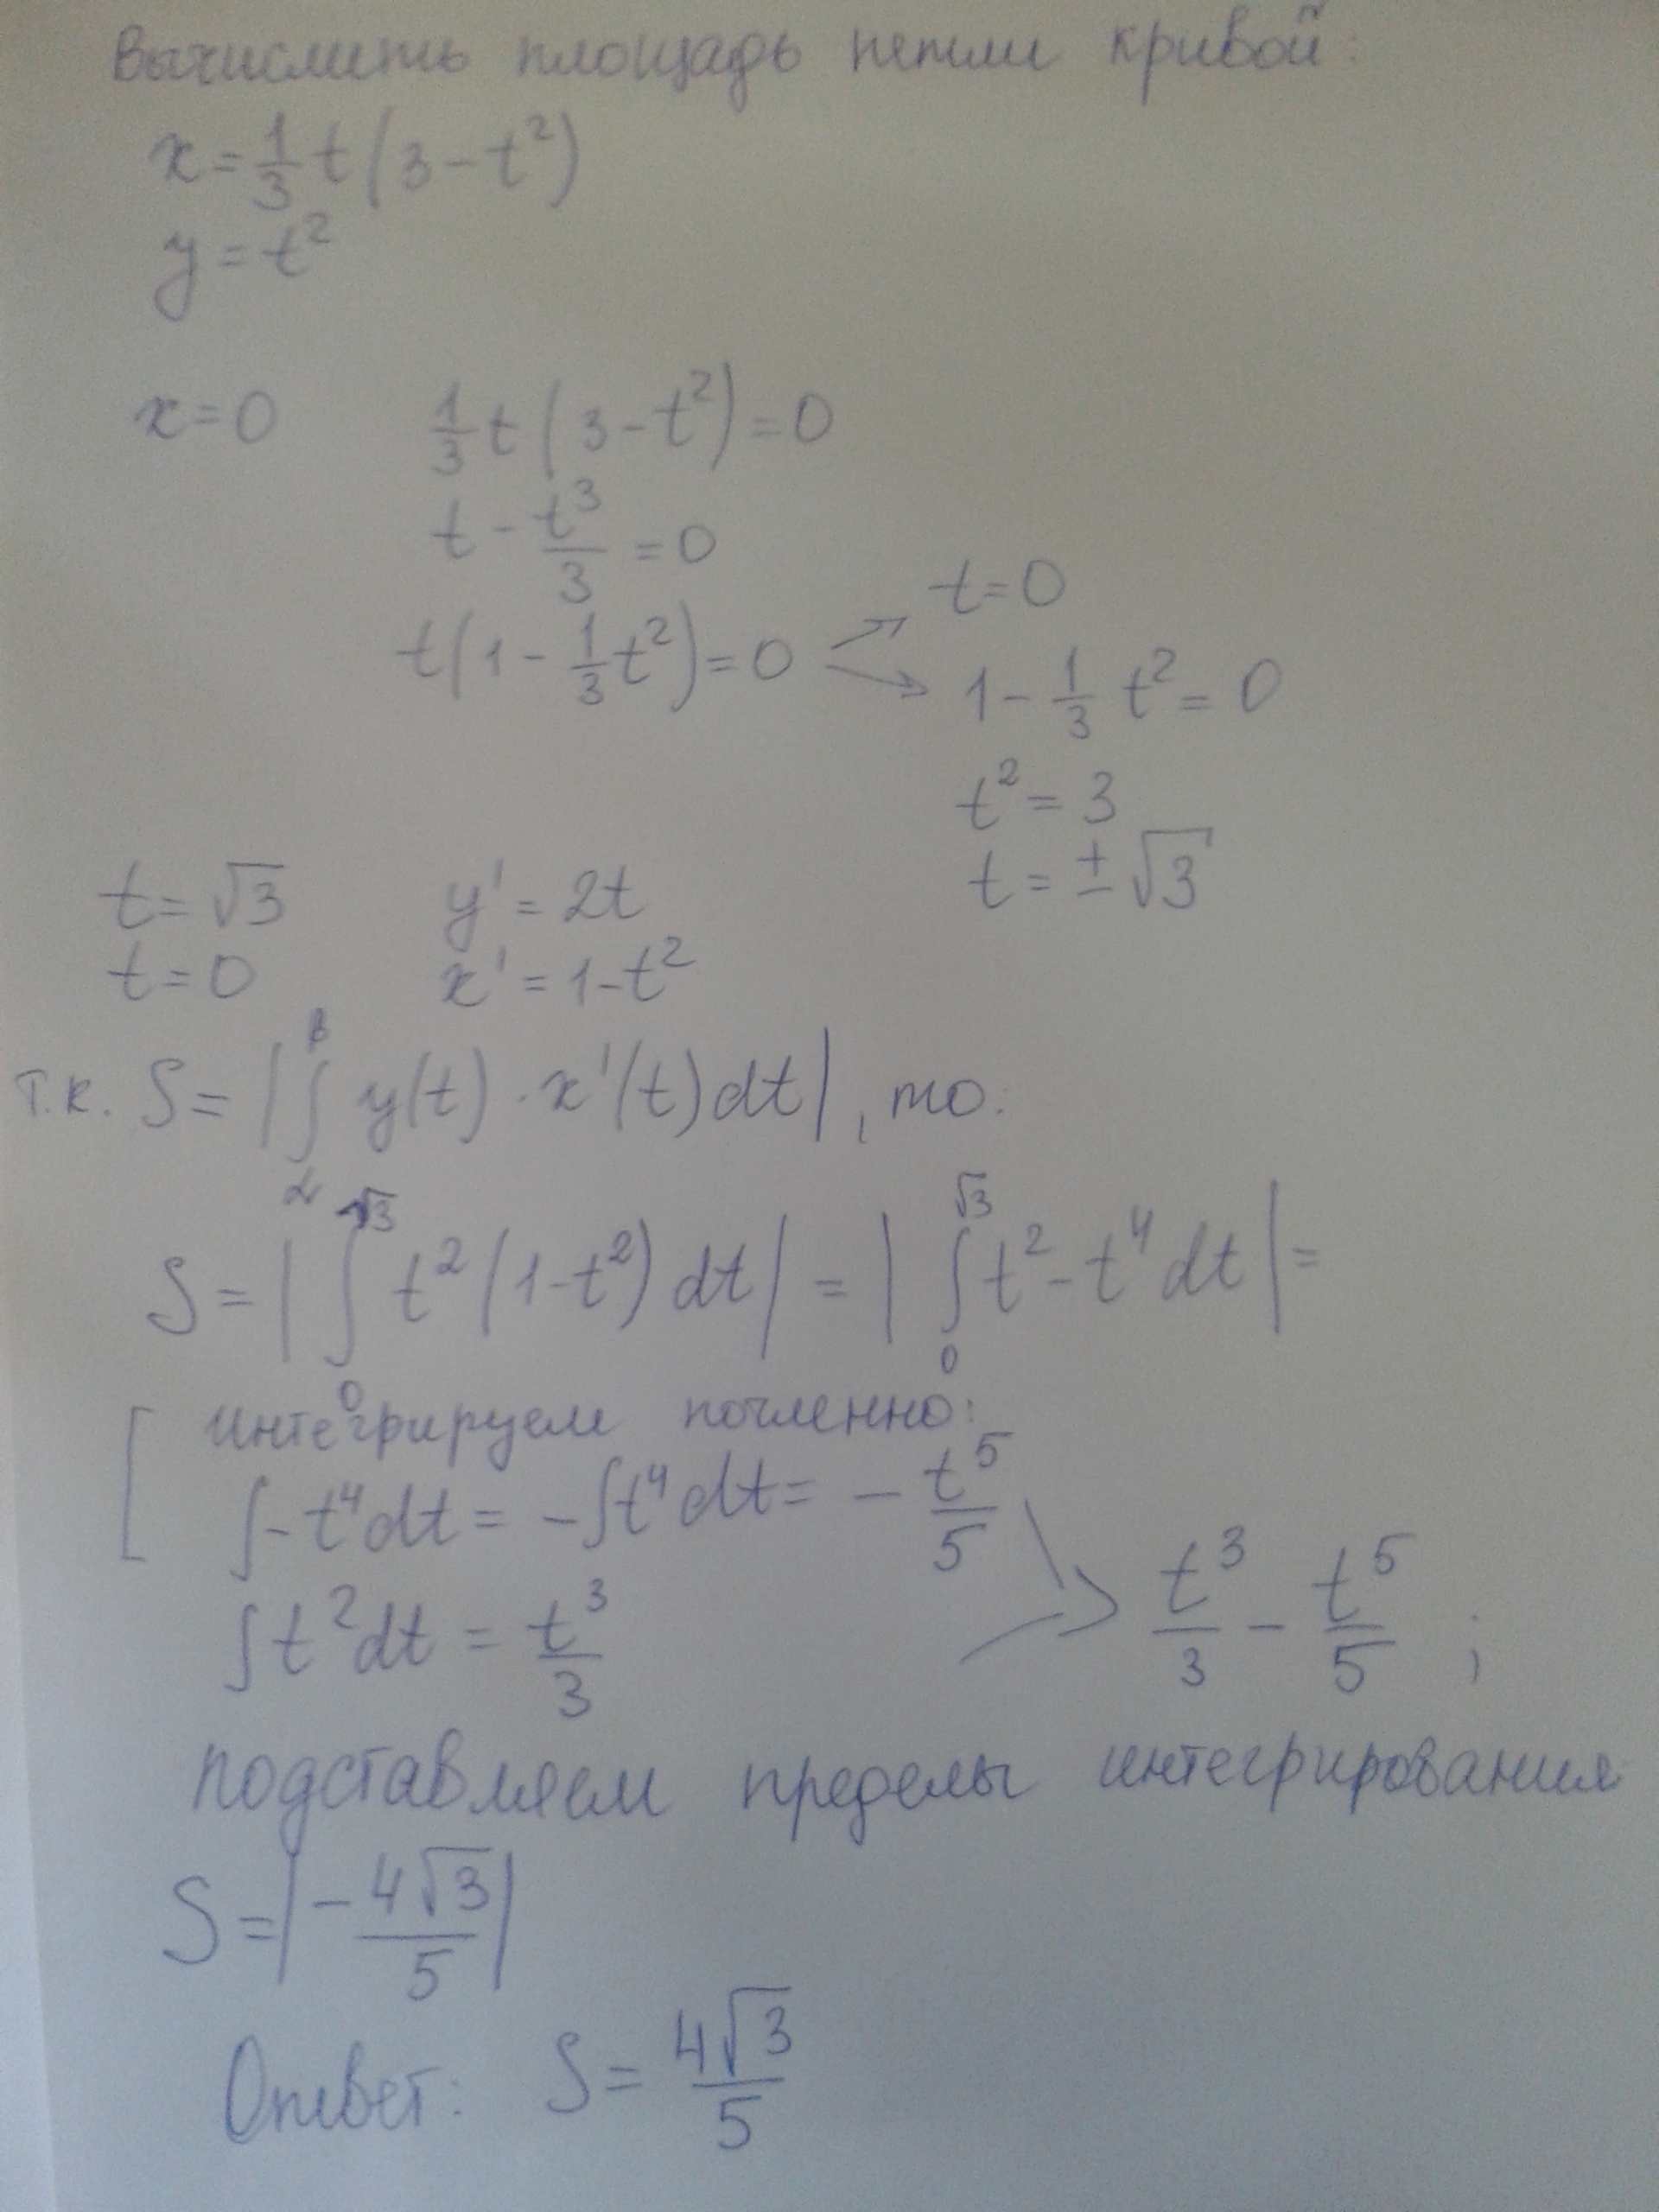 Вычислить площадь петли кривой:
x = 1/3 t (3 - t²)
y = t²
x = 0 1/3 t (3 - t²) = 0
t - t³/3 = 0
t = 0
t(1 - 1/3 t²) = 0
1 - 1/3 t² = 0
t² = 3
t = ± √3
t = √3 y' = 2t
t = 0 x' = 1 - t²
т.к. S = |∫_α^β y(t) · x'(t) dt|, то:
S = |∫_0^√3 t² (1 - t²) dt| = |∫_0^√3 t² - t⁴ dt| =
[ интегрируем почленно:
∫ - t⁴ dt = - ∫ t⁴ dt = - t⁵/5
∫ t² dt = t³/3
t³/3 - t⁵/5 ;
подставляем пределы интегрирования
S = |- 4√3/5|
Ответ: S = 4√3/5